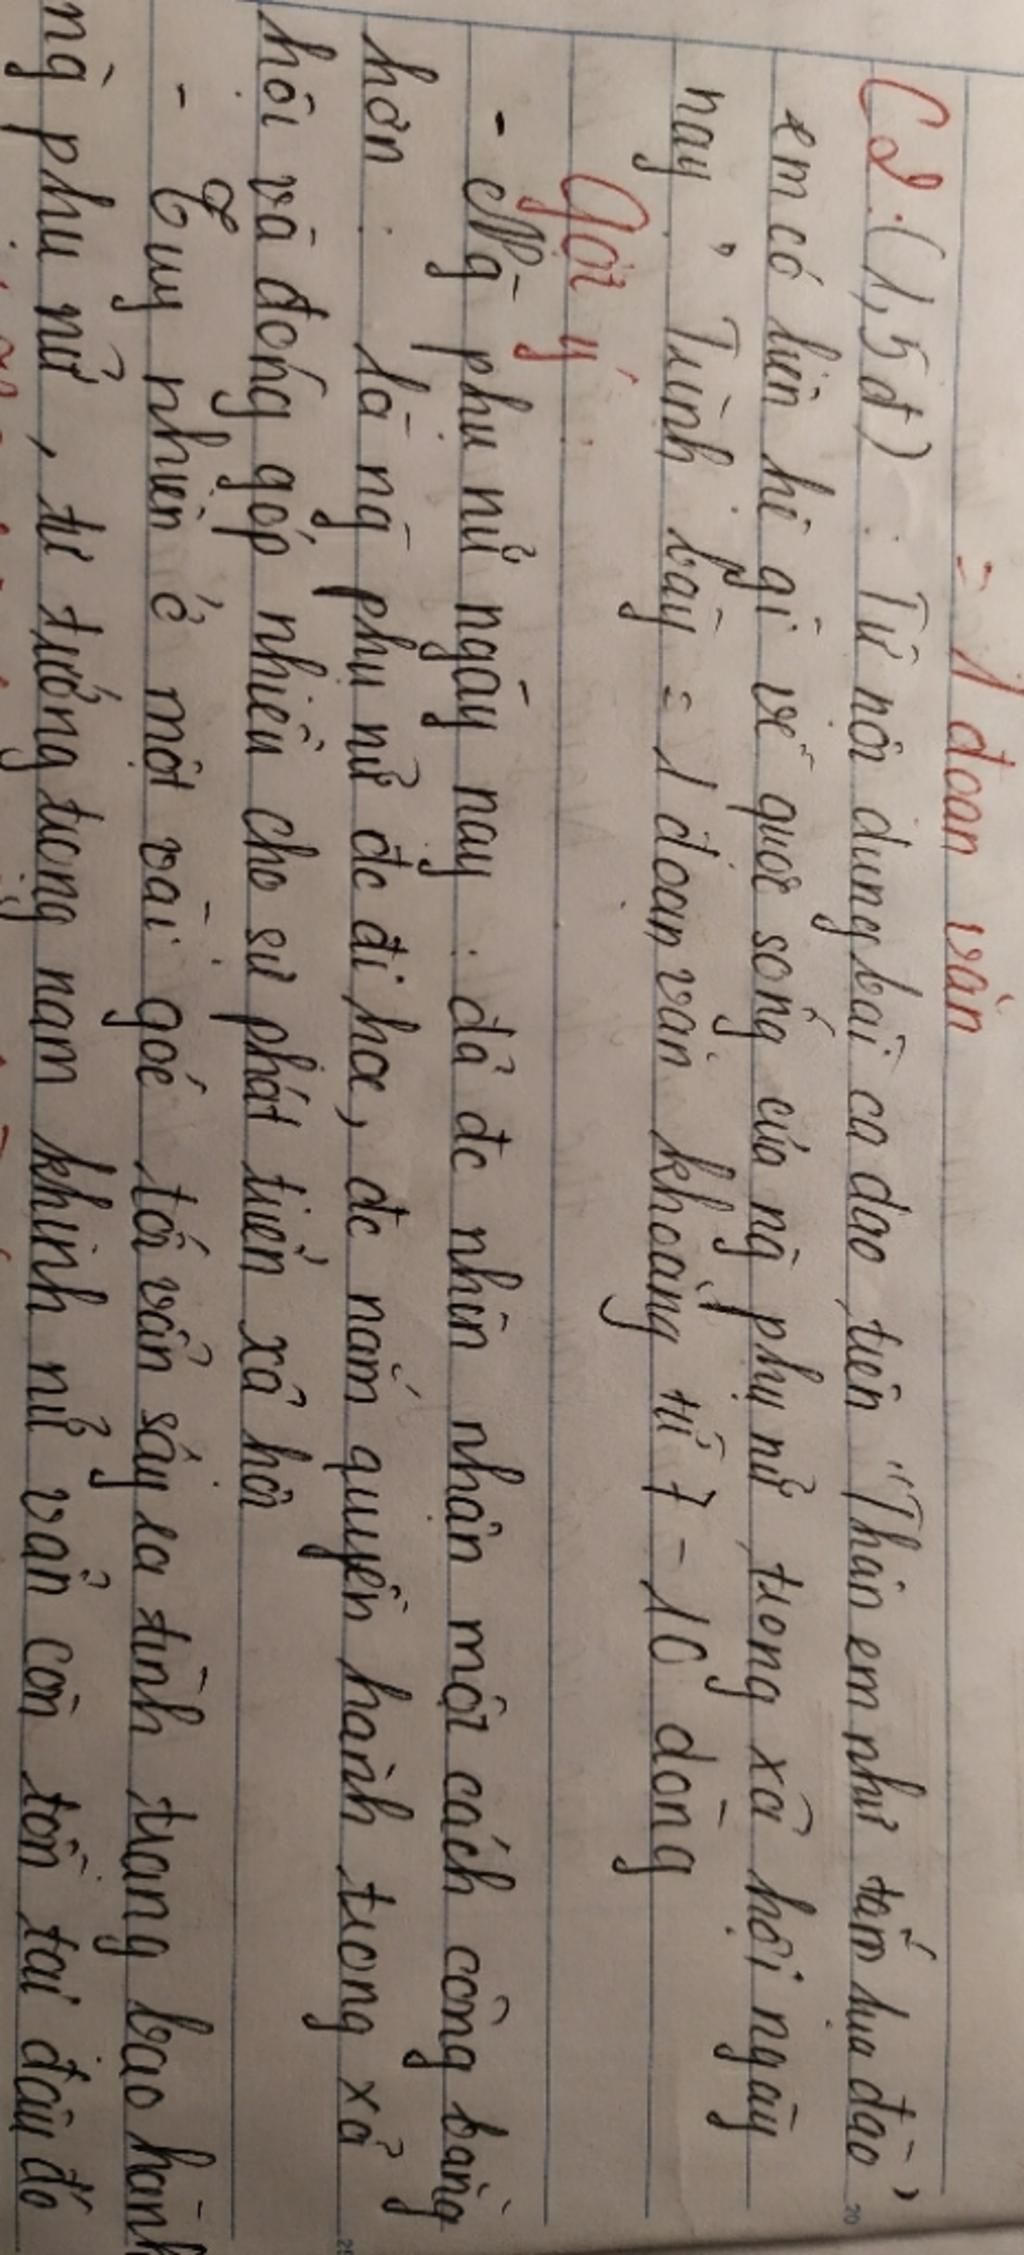 = 1 đoạn văn
C2: (1,5đ) : Từ nội dung bài ca dao trên "Thân em như tấm lụa đào"
em có liên hệ gì về cuộc sống của ng phụ nữ trong xã hội ngày
nay, Trình bày = 1 đoạn văn khoảng từ 7 - 10 dòng
Gợi ý:
- Ng phụ nữ ngày nay : đã đc nhìn nhận một cách công bằng
hơn : là ng phụ nữ đc đi học, đc nắm quyền hành trong xã
hội và đóng góp nhiều cho sự phát triển xã hội
- Tuy nhiên ở một vài góc tối vẫn sảy ra tình trạng bạo hành
ng phụ nữ, tư tưởng trọng nam khinh nữ vẫn còn tồn tại đâu đó